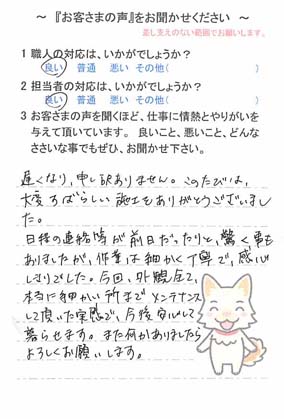 ～ 『お客さまの声』をお聞かせください ～
差し支えのない範囲でお願いします。
1 職人の対応は、いかがでしょうか?
良い 普通 悪い その他( )
2 担当者の対応は、いかがでしょうか?
良い 普通 悪い その他( )
3 お客さまの声を聞くほど、仕事に情熱とやりがいを
与えて頂いています。 良いこと、悪いこと、どんな
ささいな事でもぜひ、お聞かせ下さい。
遅くなり、申し訳ありません。このたびは、
大変すばらしい施工をありがとうございまし
た。
日程の連絡等が前日だったりと、驚く事も
ありましたが、作業は細かく丁寧で、感心
しきりでした。今回、外観全て、
本当に細かい所までメンテナンス
して頂いた実感で、今後安心して
暮らせます。また何かありましたら
よろしくお願いします。